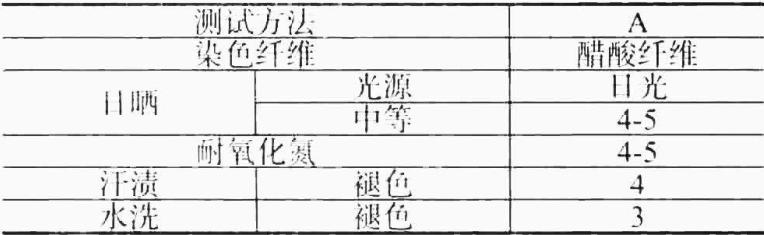 测试方法 A
染色纤维 醋酸纤维
日晒 光源 日光
中等 4-5
耐氧化氮 4-5
汗渍 褪色 4
水洗 褪色 3